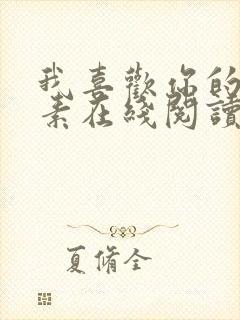 我喜歡你的
素在綫閱讀
夏脩全